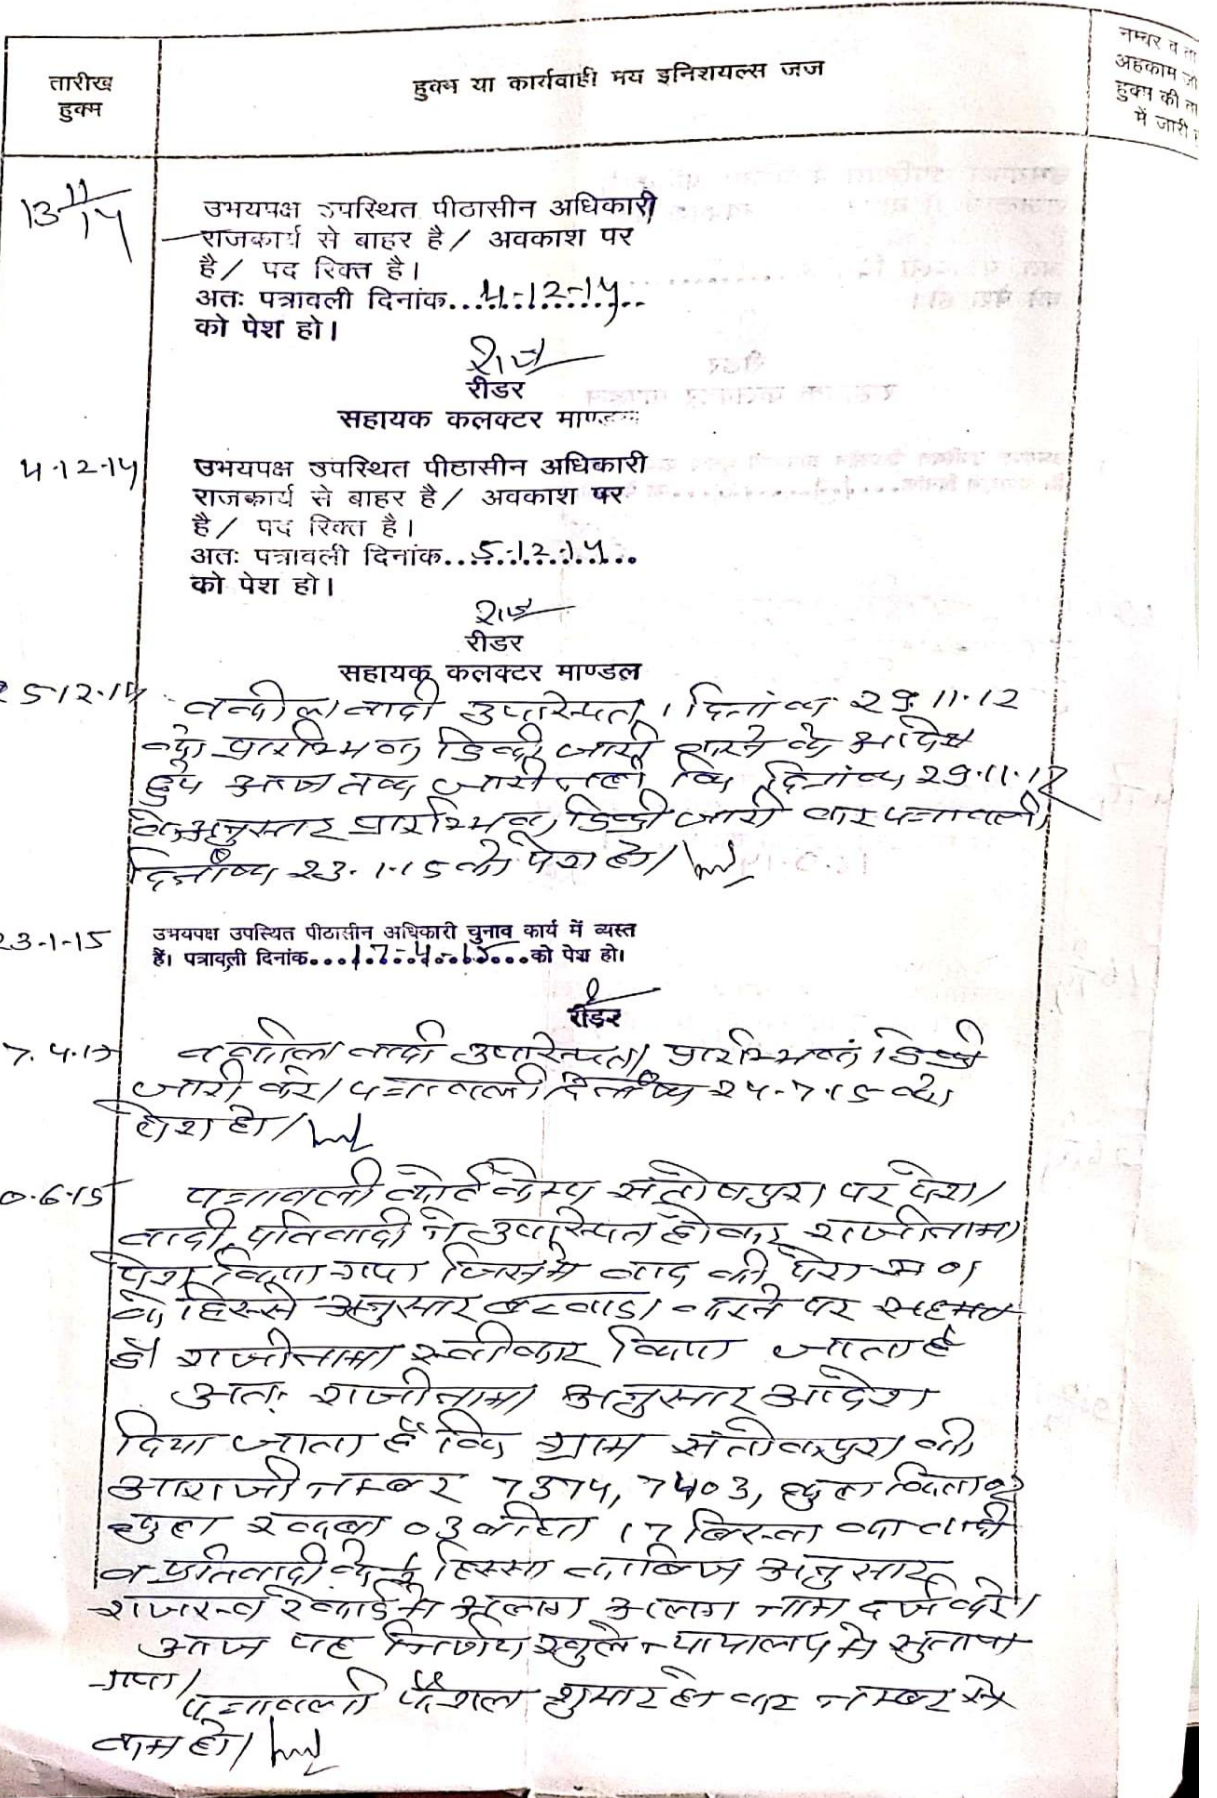 तारीख
हुक्म
हुक्म या कार्यवाही मय इनिशयल्स जज
नम्बर व ता
अहकाम जो
हुक्म की ता
में जारी
13 11/14
उभयपक्ष उपस्थित पीठासीन अधिकारी
राजकार्य से बाहर है / अवकाश पर
है / पद रिक्त है।
अतः पत्रावली दिनांक...4-12-14...
को पेश हो।
रीडर
सहायक कलक्टर माण्डल
4.12.14
उभयपक्ष उपस्थित पीठासीन अधिकारी
राजकार्य से बाहर है / अवकाश पर
है / पद रिक्त है।
अतः पत्रावली दिनांक...5.12.14...
को पेश हो।
रीडर
सहायक कलक्टर माण्डल
5.12.14
वकील वादी उपस्थित। दिनांक 29.11.12
को प्रारम्भिक डिक्री जारी करने के आदेश
हुए आज तक जारी नहीं कि दिनांक 29.11.12
के अनुसार प्रारम्भिक डिक्री जारी कर पत्रावली
दिनांक 23.1.15 को पेश हो।
23-1-15
उभयपक्ष उपस्थित पीठासीन अधिकारी चुनाव कार्य में व्यस्त
हैं। पत्रावली दिनांक...17-4-15...को पेश हो।
रीडर
7.4.15
वकील वादी उपस्थित। प्रारम्भिक डिक्री
जारी करे। पत्रावली दिनांक 24.7.15 को
पेश हो।
0.6.15
पत्रावली कोर्ट केम्प संतोषपुरा पर पेश।
वादी, प्रतिवादी ने उपस्थित होकर राजीनामा
पेश किया गया जिसमे वाद की
के हिस्से अनुसार बटवाडा करने पर सहमत
है। राजीनामा स्वीकार किया जाता है
अतः राजीनामा अनुसार आदेश
दिया जाता है कि ग्राम संतोषपुरा की
आराजी नम्बर 7374, 7403, कुल किता 02
कुल रकबा 03 बीघा 17 बिस्वा का वादी
व प्रतिवादी के हिस्सा काबिज अनुसार
राजस्व रेकार्ड मे अलग अलग नाम दर्ज करे।
आज यह निर्णय खुले न्यायालय मे सुनाया
गया।
पत्रावली फैशल शुमार होकर नम्बर से
कम हो।